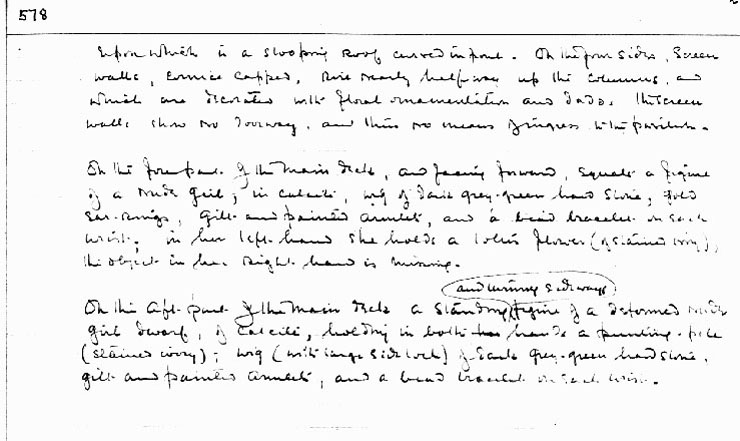 578
upon which is a slooping roof curved in front. On the four sides, screen
walls, cornice capped, rise nearly half way up the columns, and
which are decorated with floral ornamentation and dado. The screen
walls show no doorway, and thus no means of ingress to the pavilion.
On the fore part of the main deck, and facing forward, squats a figure
of a nude girl; in calcite, wig of dark grey-green hard stone, gold
ear-rings, gilt and painted armlet, and a bead bracelet on each
wrist; in her left hand she holds a lotus flower (of stained ivory),
the object in her right hand is missing.
and turning sideways
On the aft part of the main deck a standing figure of a deformed nude
girl dwarf, of calcite, holding in both hands a punting-pole
(stained ivory); wig (with large side lock) of dark grey-green hard stone,
gilt and painted armlet, and a bead bracelet on each wrist.